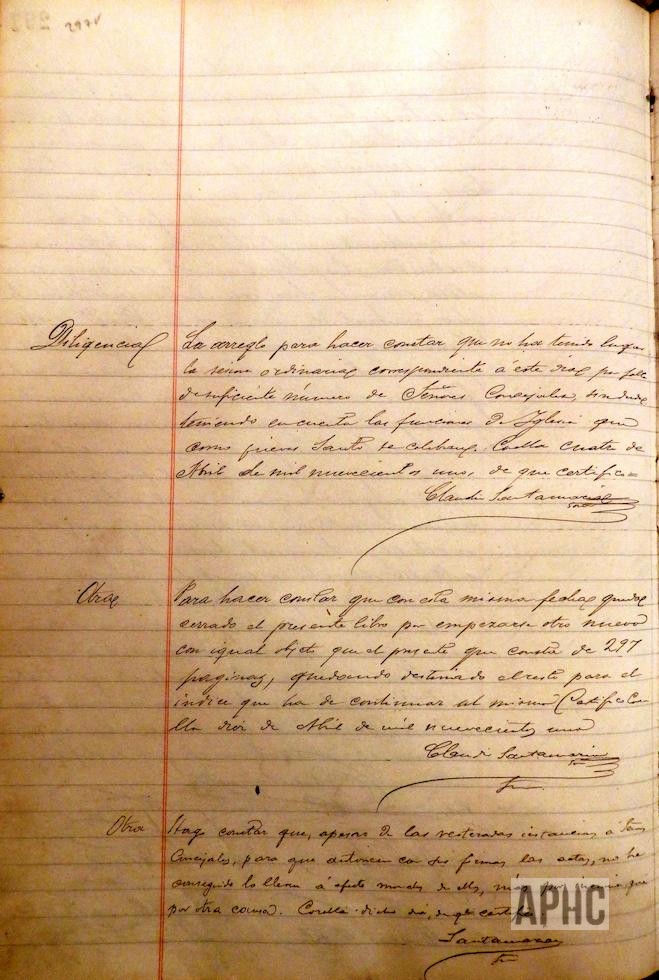 297v
Diligencia La arreglo para hacer constar que no ha tenido lugar
la sesion ordinaria correspondiente á este dia por falta
de suficiente número de Señores Concejales, sin duda
teniendo en cuenta las funciones de Iglesia que
como jueves Santo se celebran. Corella cuatro de
Abril de mil nuevecientos uno, de que certifico=
Claudio Santamaria
Otra Para hacer constar que con esta misma fecha queda
cerrado el presente libro por empezarse otro nuevo
con igual objeto que el presente que consta de 297
paginas, quedando destinado el resto para el
indice que ha de continuar al mismo. Certifico Co-
rella diez de Abril de mil nuevecientos uno
Claudio Santamaria
Otra Hago constar que, apesar de las reiteradas instancias a los
Concejales, para que autoricen con sus firmas las actas, no he
conseguido lo lleven á efecto muchos de ellos, mas por incuria que
por otra cosa. Corella dicho dia, de que certifico
Santamaria
APHC